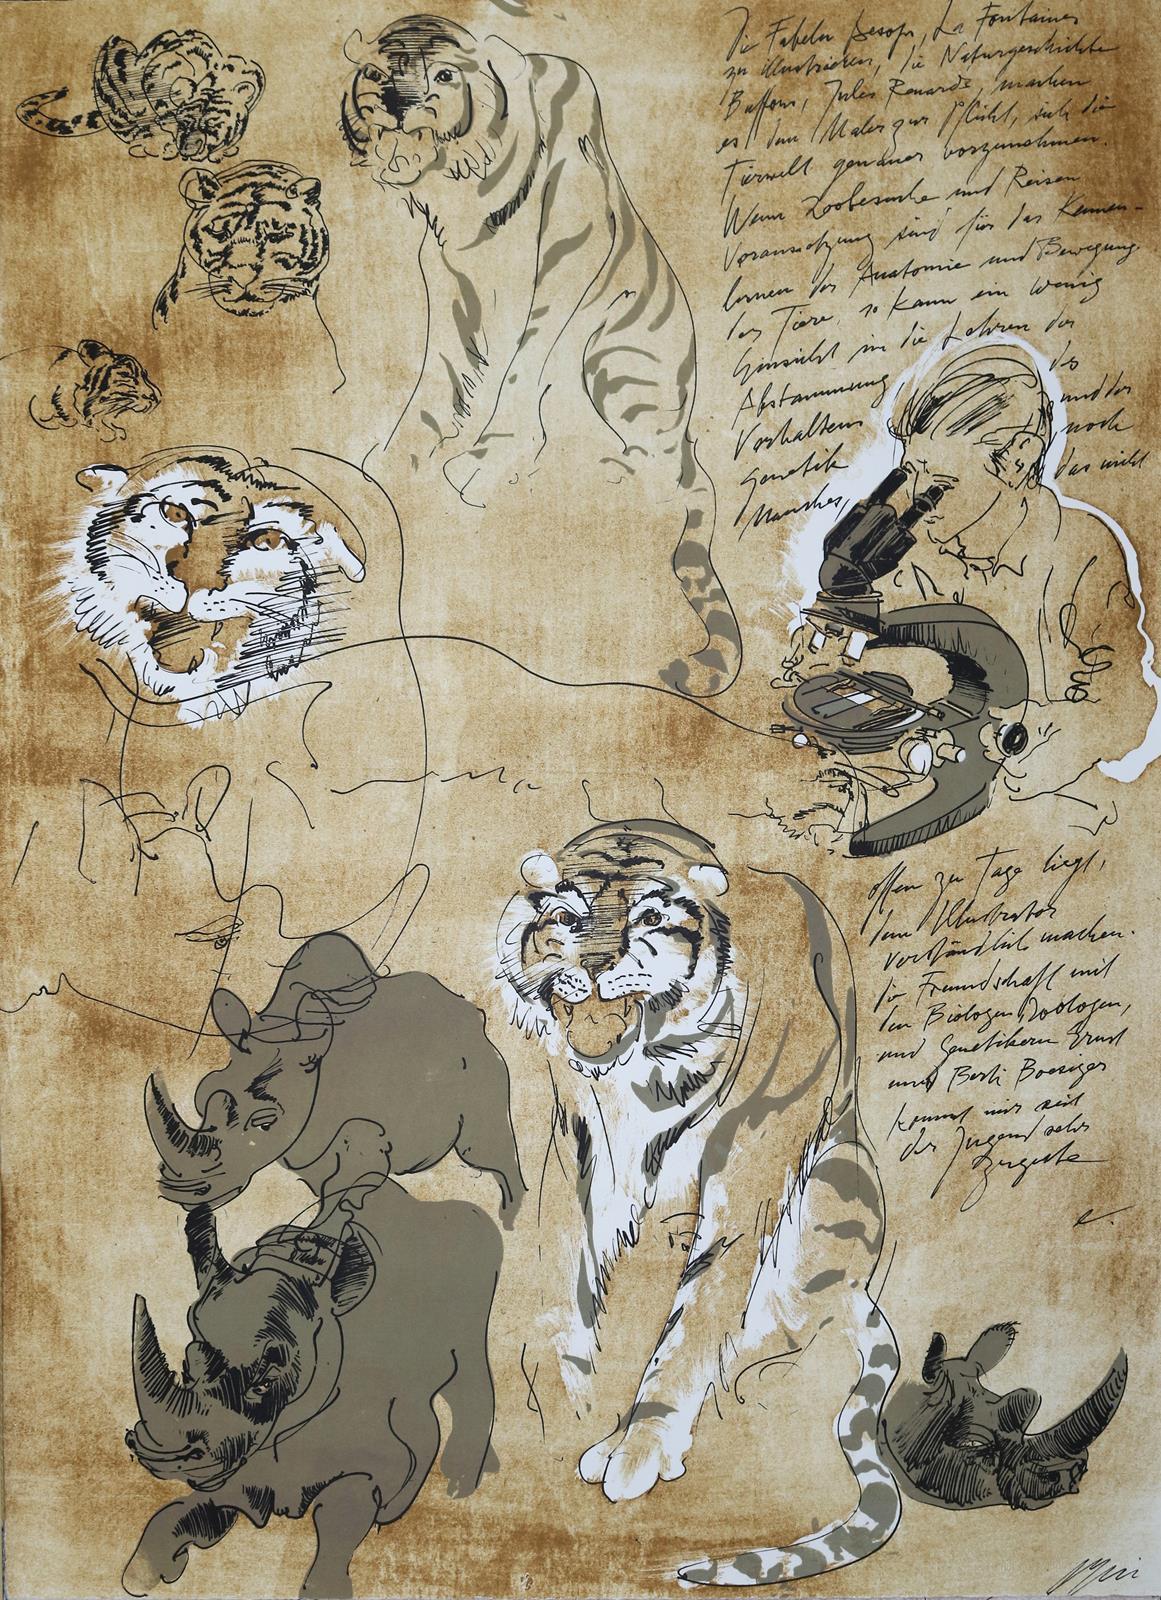 Die Fabeln Aesops, La Fontaines
zu illustrieren, die Naturgeschichte
Buffons, Jules Renards, machen
es dem Maler zur Pflicht, sich die
Tierwelt genauer vorzunehmen.
Wenn Zoobesuche und Reisen
Voraussetzung sind für das Kennen-
lernen der Anatomie und Bewegung
der Tiere, so kann ein wenig
Einsicht in die Lehren der
Abstammung des
Verhaltens und der
Genetik noch
Manches, das nicht
offen zu Tage liegt,
dem Illustrator
verständlich machen.
die Freundschaft mit
den Biologen Zoologen,
und Genetikern Ernst
und Berti Boesiger
kommt mir seit
der Jugend sehr
zugute
e.